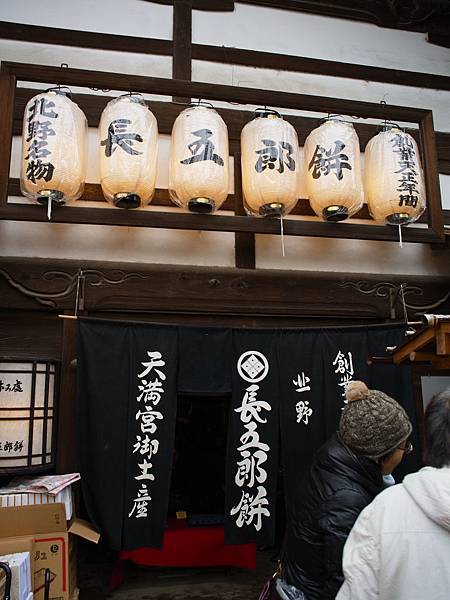 北野名物
長五郎餅
創業天正年間
天満宮御土産
長五郎餅
北野
創業